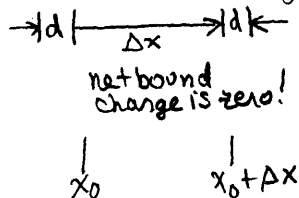 d d
Δx
net bound
change is zero!
x₀ x₀+Δx